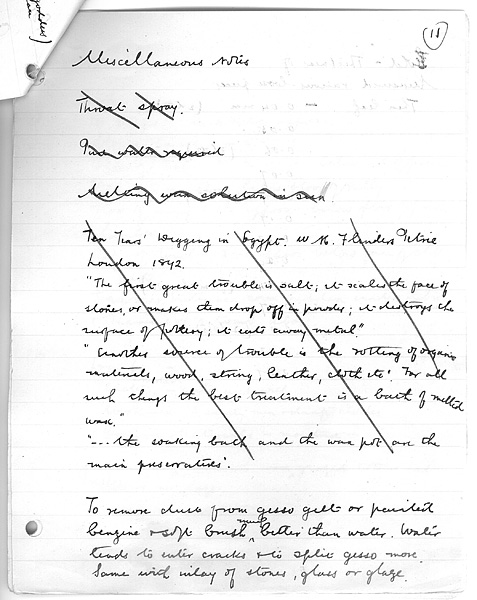 11
Miscellaneous notes
Throat spray.
water
Melting wax solution is seen
Ten Years' Digging in Egypt. W. M. Flinders Petrie
London 1892.
"The first great trouble is salt; it scales the face of
stones, or makes them drop off in powder; it destroys the
surface of pottery; it eats away metal."
"Another source of trouble is the rotting of organic
materials, wood, string, leather, cloth etc'. For all
such things the best treatment is a bath of melted
wax."
"... the soaking bath and the wax pot are the
main preservatives".
To remove dust from gesso gilt or painted
benzine & soft brush much better than water. Water
tends to enter cracks & to split gesso more.
Same with inlay of stones, glass or glaze.